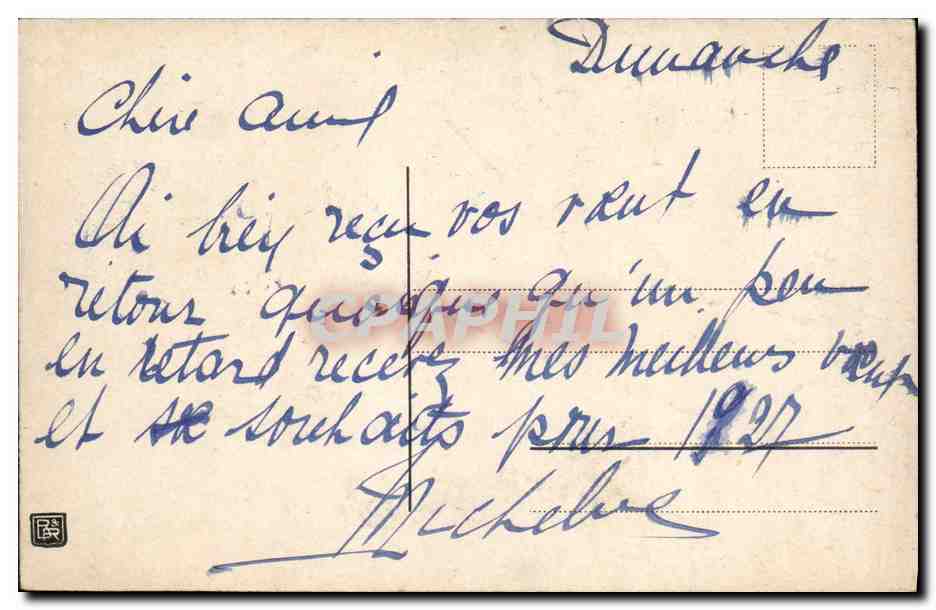 Dimanche
Chère amie
Ai bien reçu vos vœux en
retour quoique qu'un peu
en retard recevez mes meilleurs vœux
et souhaits pour 1927
Micheline
CPAPHIL
P&R